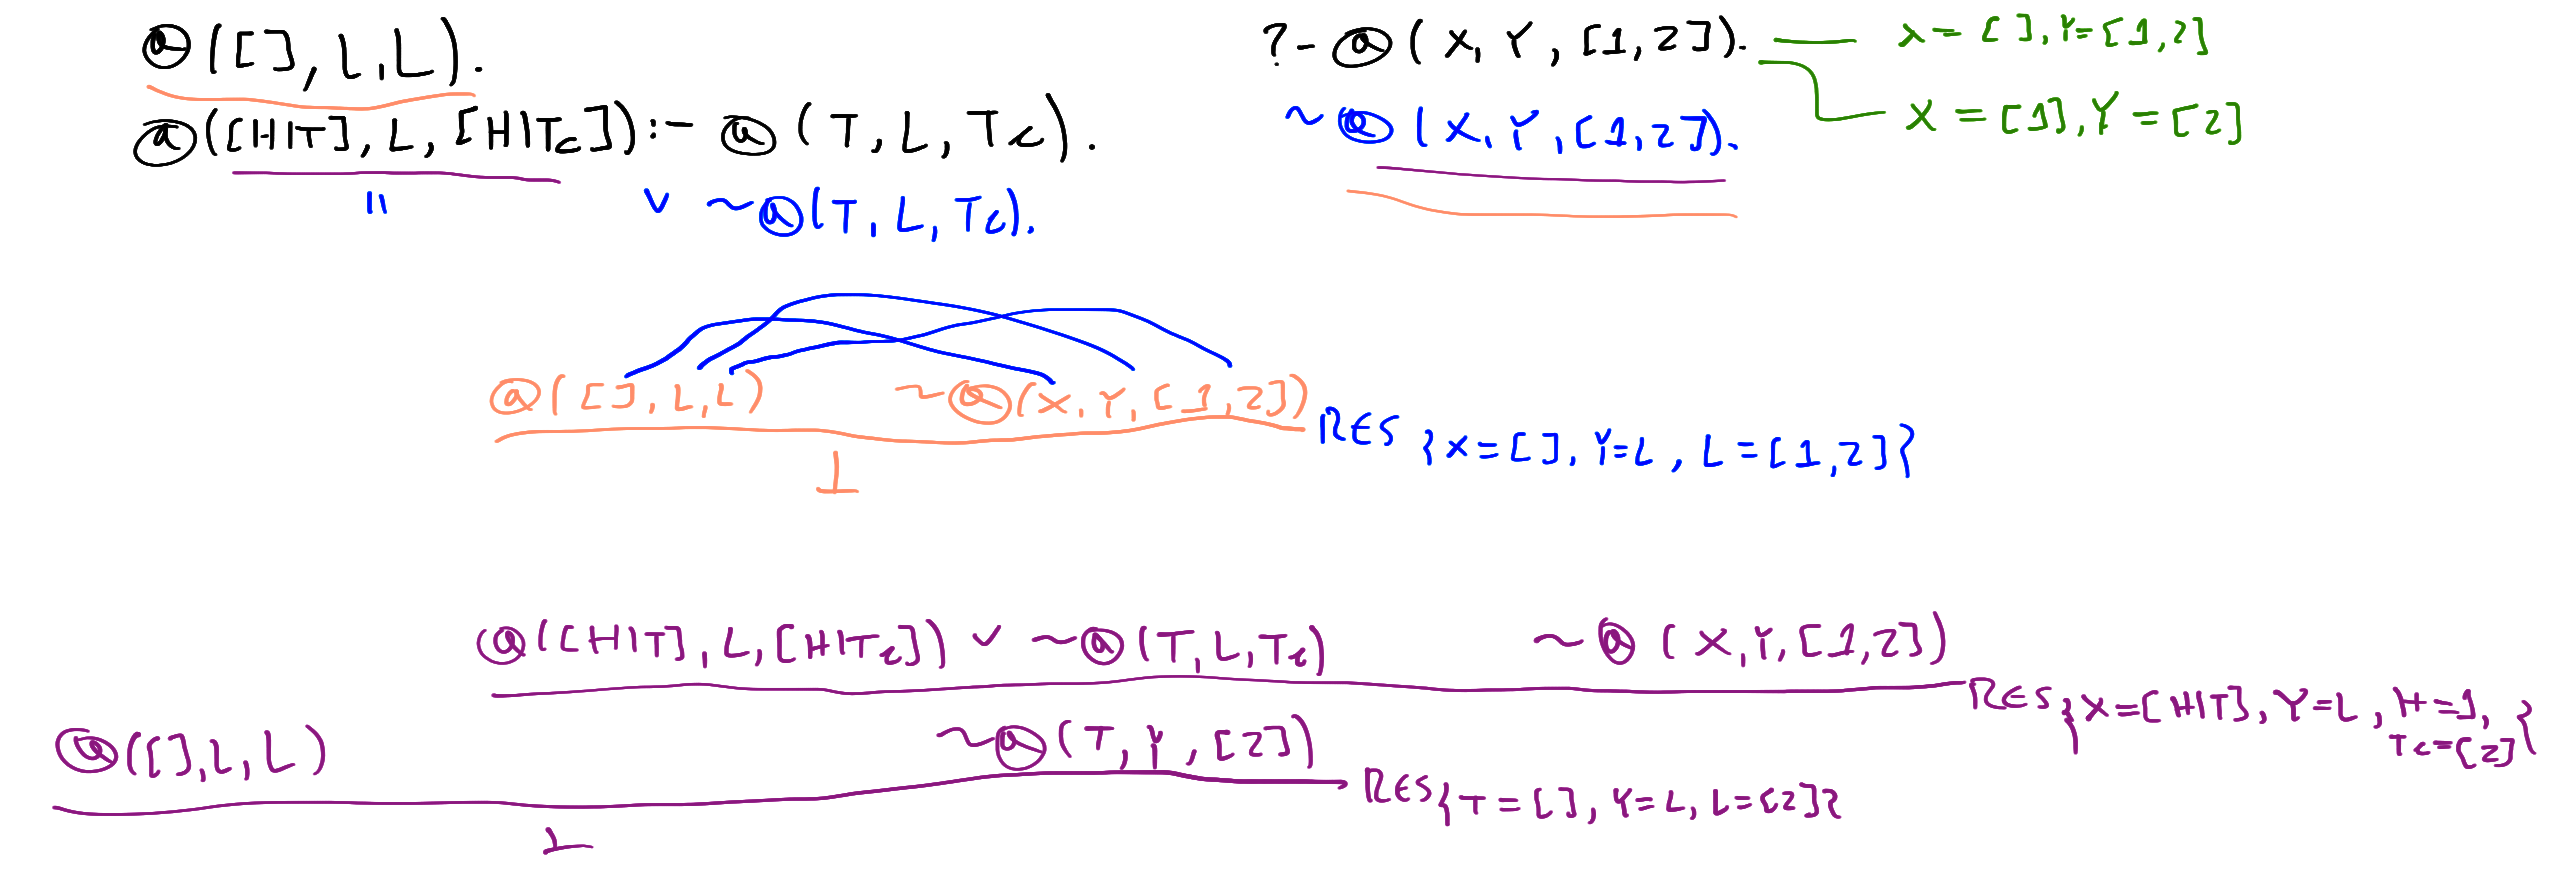 ⓐ([], L, L).
ⓐ([H|T], L, [H|Tc]) :- ⓐ(T, L, Tc).
" ∨ ~ⓐ(T, L, Tc).
?- ⓐ(X, Y, [1,2]).
X = [], Y = [1,2]
X = [1], Y = [2]
~ⓐ(X, Y, [1,2]).
ⓐ([], L, L) ~ⓐ(X, Y, [1,2])
RES {X = [], Y = L, L = [1,2]}
⊥
ⓐ([H|T], L, [H|Tc]) ∨ ~ⓐ(T, L, Tc) ~ⓐ(X, Y, [1,2])
RES {X = [H|T], Y = L, H = 1,
Tc = [2]}
ⓐ([], L, L) ~ⓐ(T, Y, [2])
RES {T = [], Y = L, L = [2]}
⊥